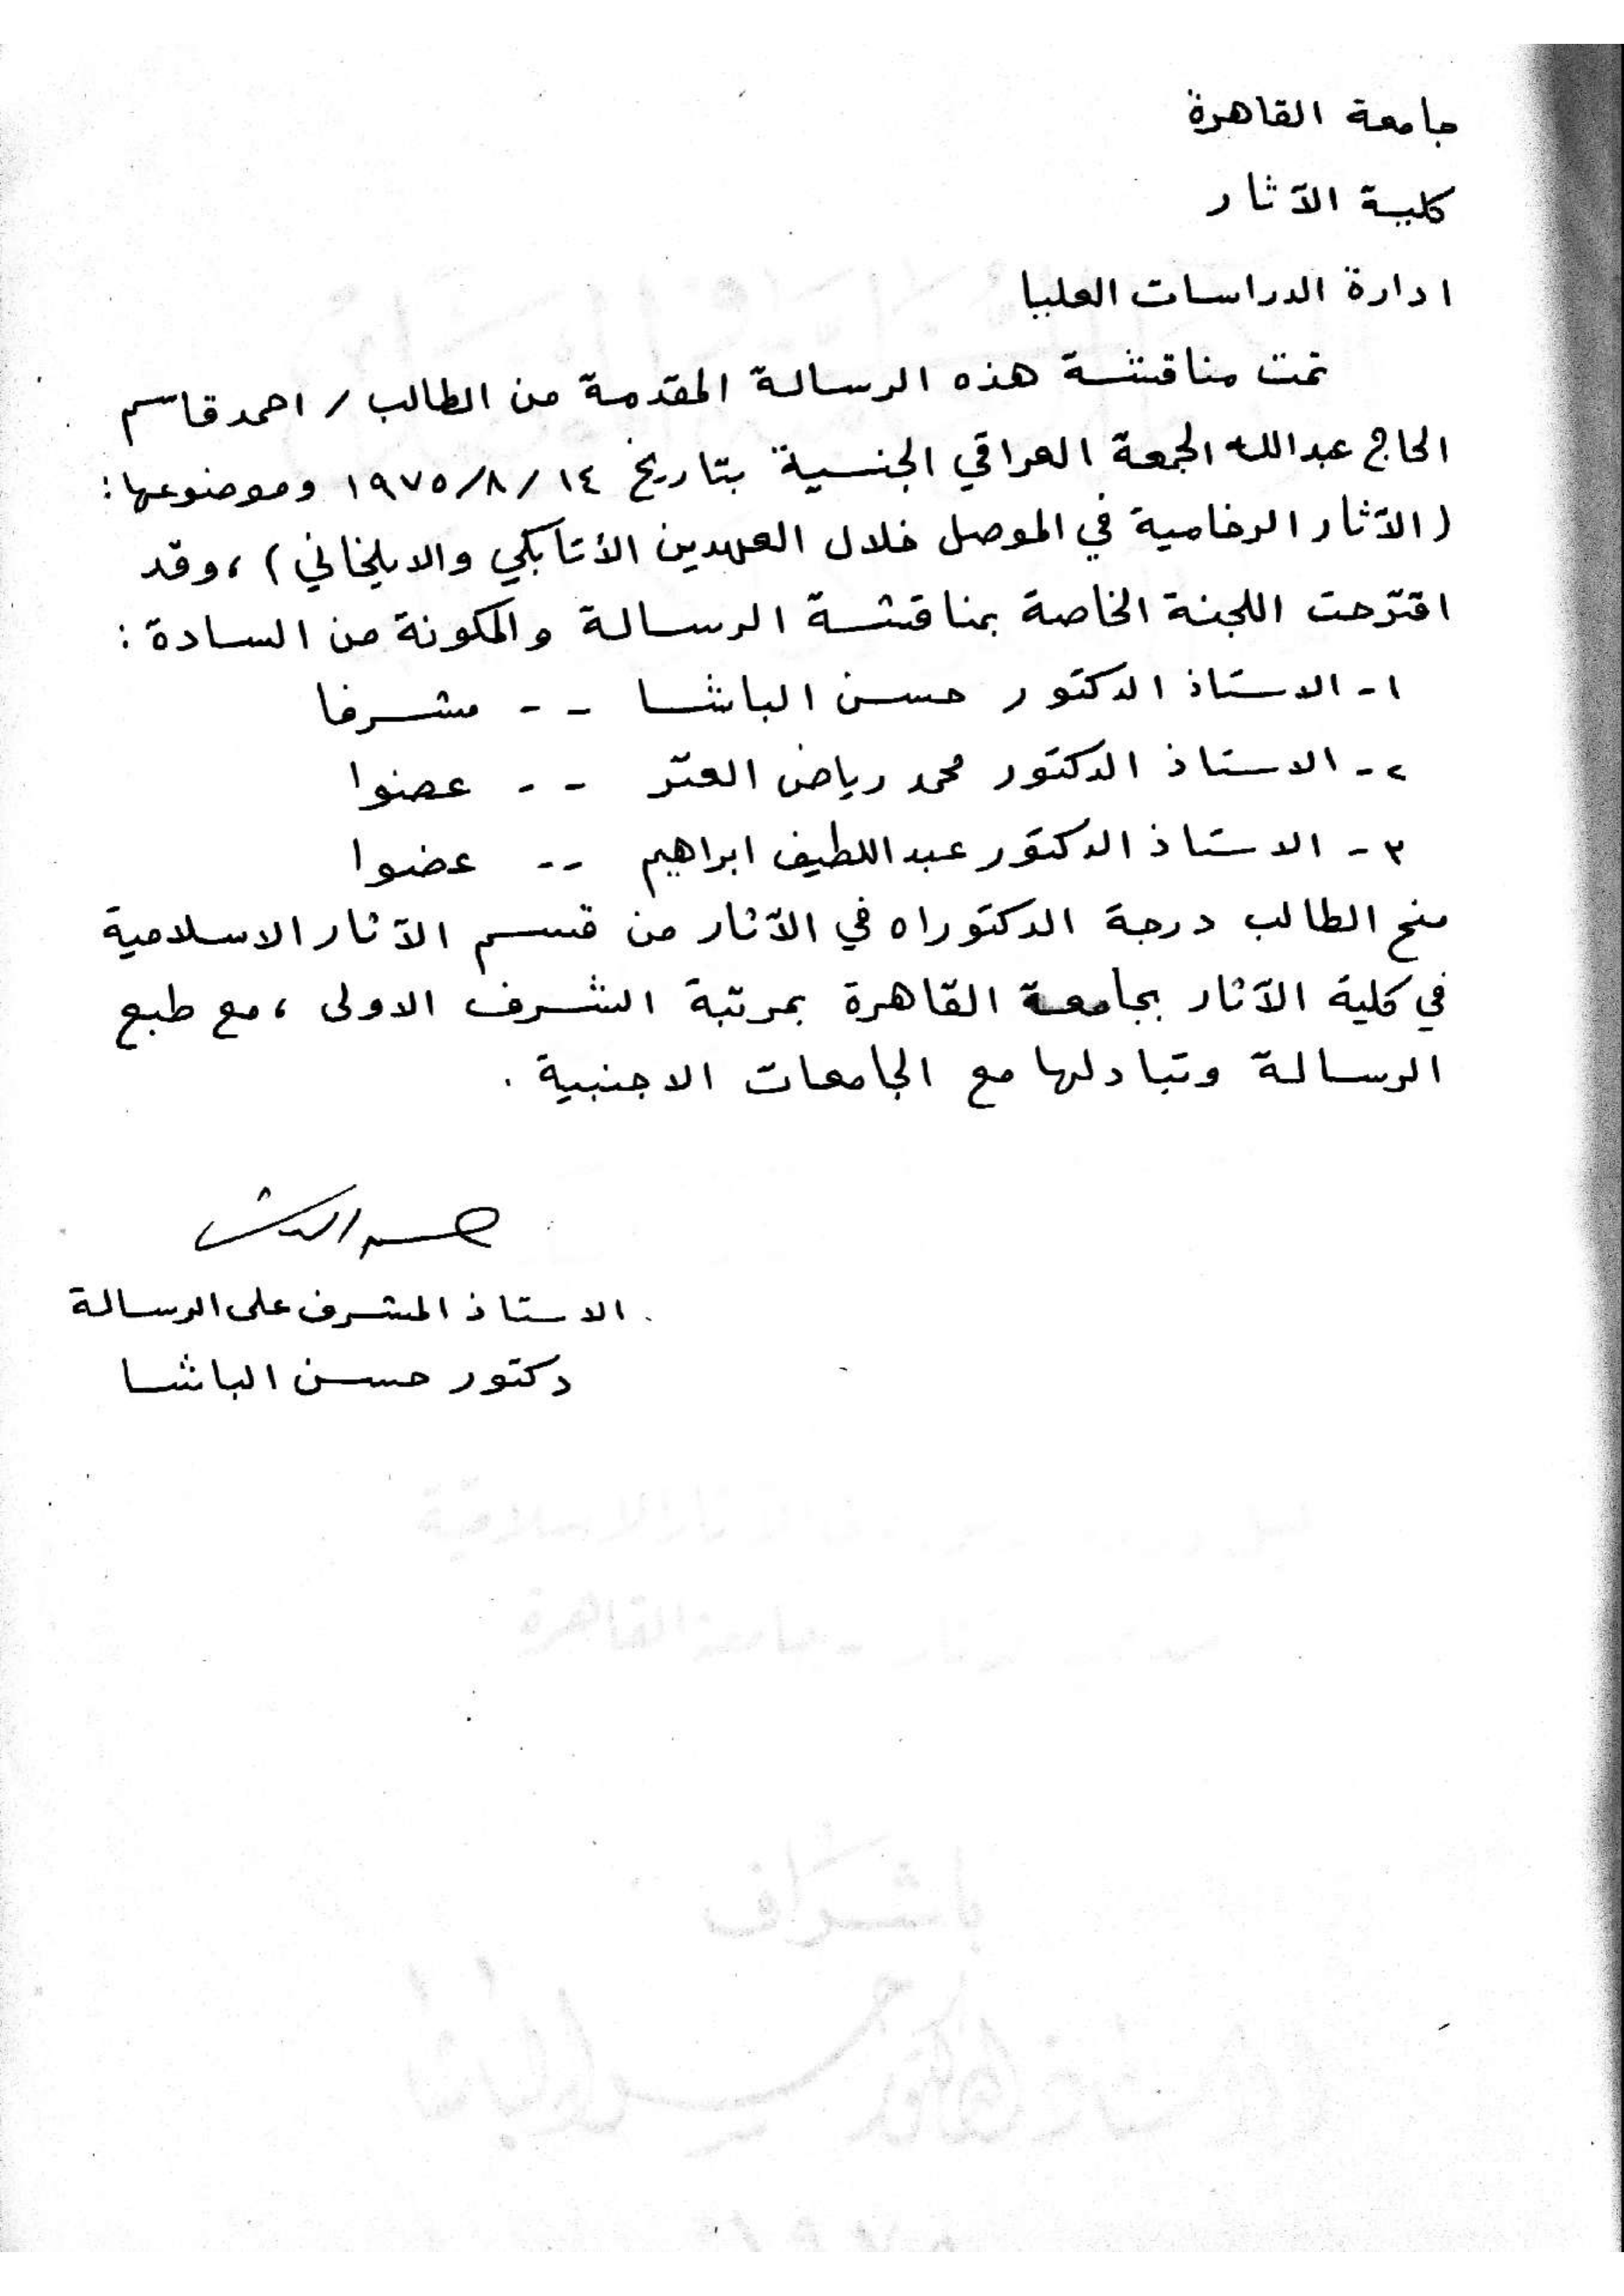 جامعة القاهرة
كلية الآثار
ادارة الدراسات العليا
تمت مناقشة هذه الرسالة المقدمة من الطالب / احمد قاسم
الحاج عبدالله الجمعة العراقي الجنسية بتاريخ ١٤ /٨/ ١٩٧٥ وموضوعها :
( الآثار الرخامية في الموصل خلال العهدين الأتابكي والايلخاني ) ، وقد
اقترحت اللجنة الخاصة بمناقشة الرسالة والمكونة من السادة :
١ - الاستاذ الدكتور حسن الباشا - - مشرفا
٢ - الاستاذ الدكتور محمد رياض العتر - - عضوا
٣ - الاستاذ الدكتور عبداللطيف ابراهيم - - عضوا
منح الطالب درجة الدكتوراه في الآثار من قسم الآثار الاسلامية
في كلية الآثار بجامعة القاهرة بمرتبة الشرف الاولى ، مع طبع
الرسالة وتبادلها مع الجامعات الاجنبية .
حسن الباشا
الاستاذ المشرف على الرسالة
دكتور حسن الباشا